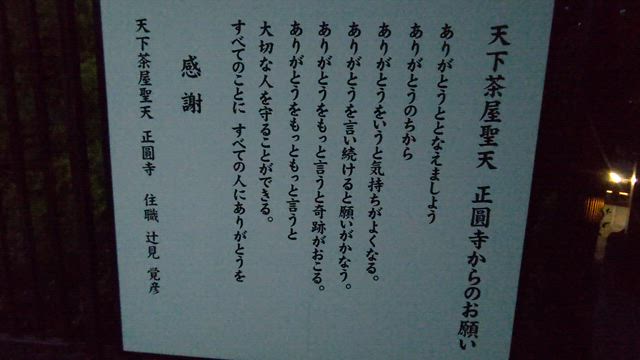 天下茶屋聖天 正圓寺からのお願い
ありがとうととなえましよう
ありがとうのちから
ありがとうをいうと気持ちがよくなる。
ありがとうを言い続けると願いがかなう。
ありがとうをもっと言うと奇跡がおこる。
ありがとうをもっともっと言うと
大切な人を守ることができる。
すべてのことに すべての人にありがとうを
感謝
天下茶屋聖天 正圓寺 住職 辻見 覚彦